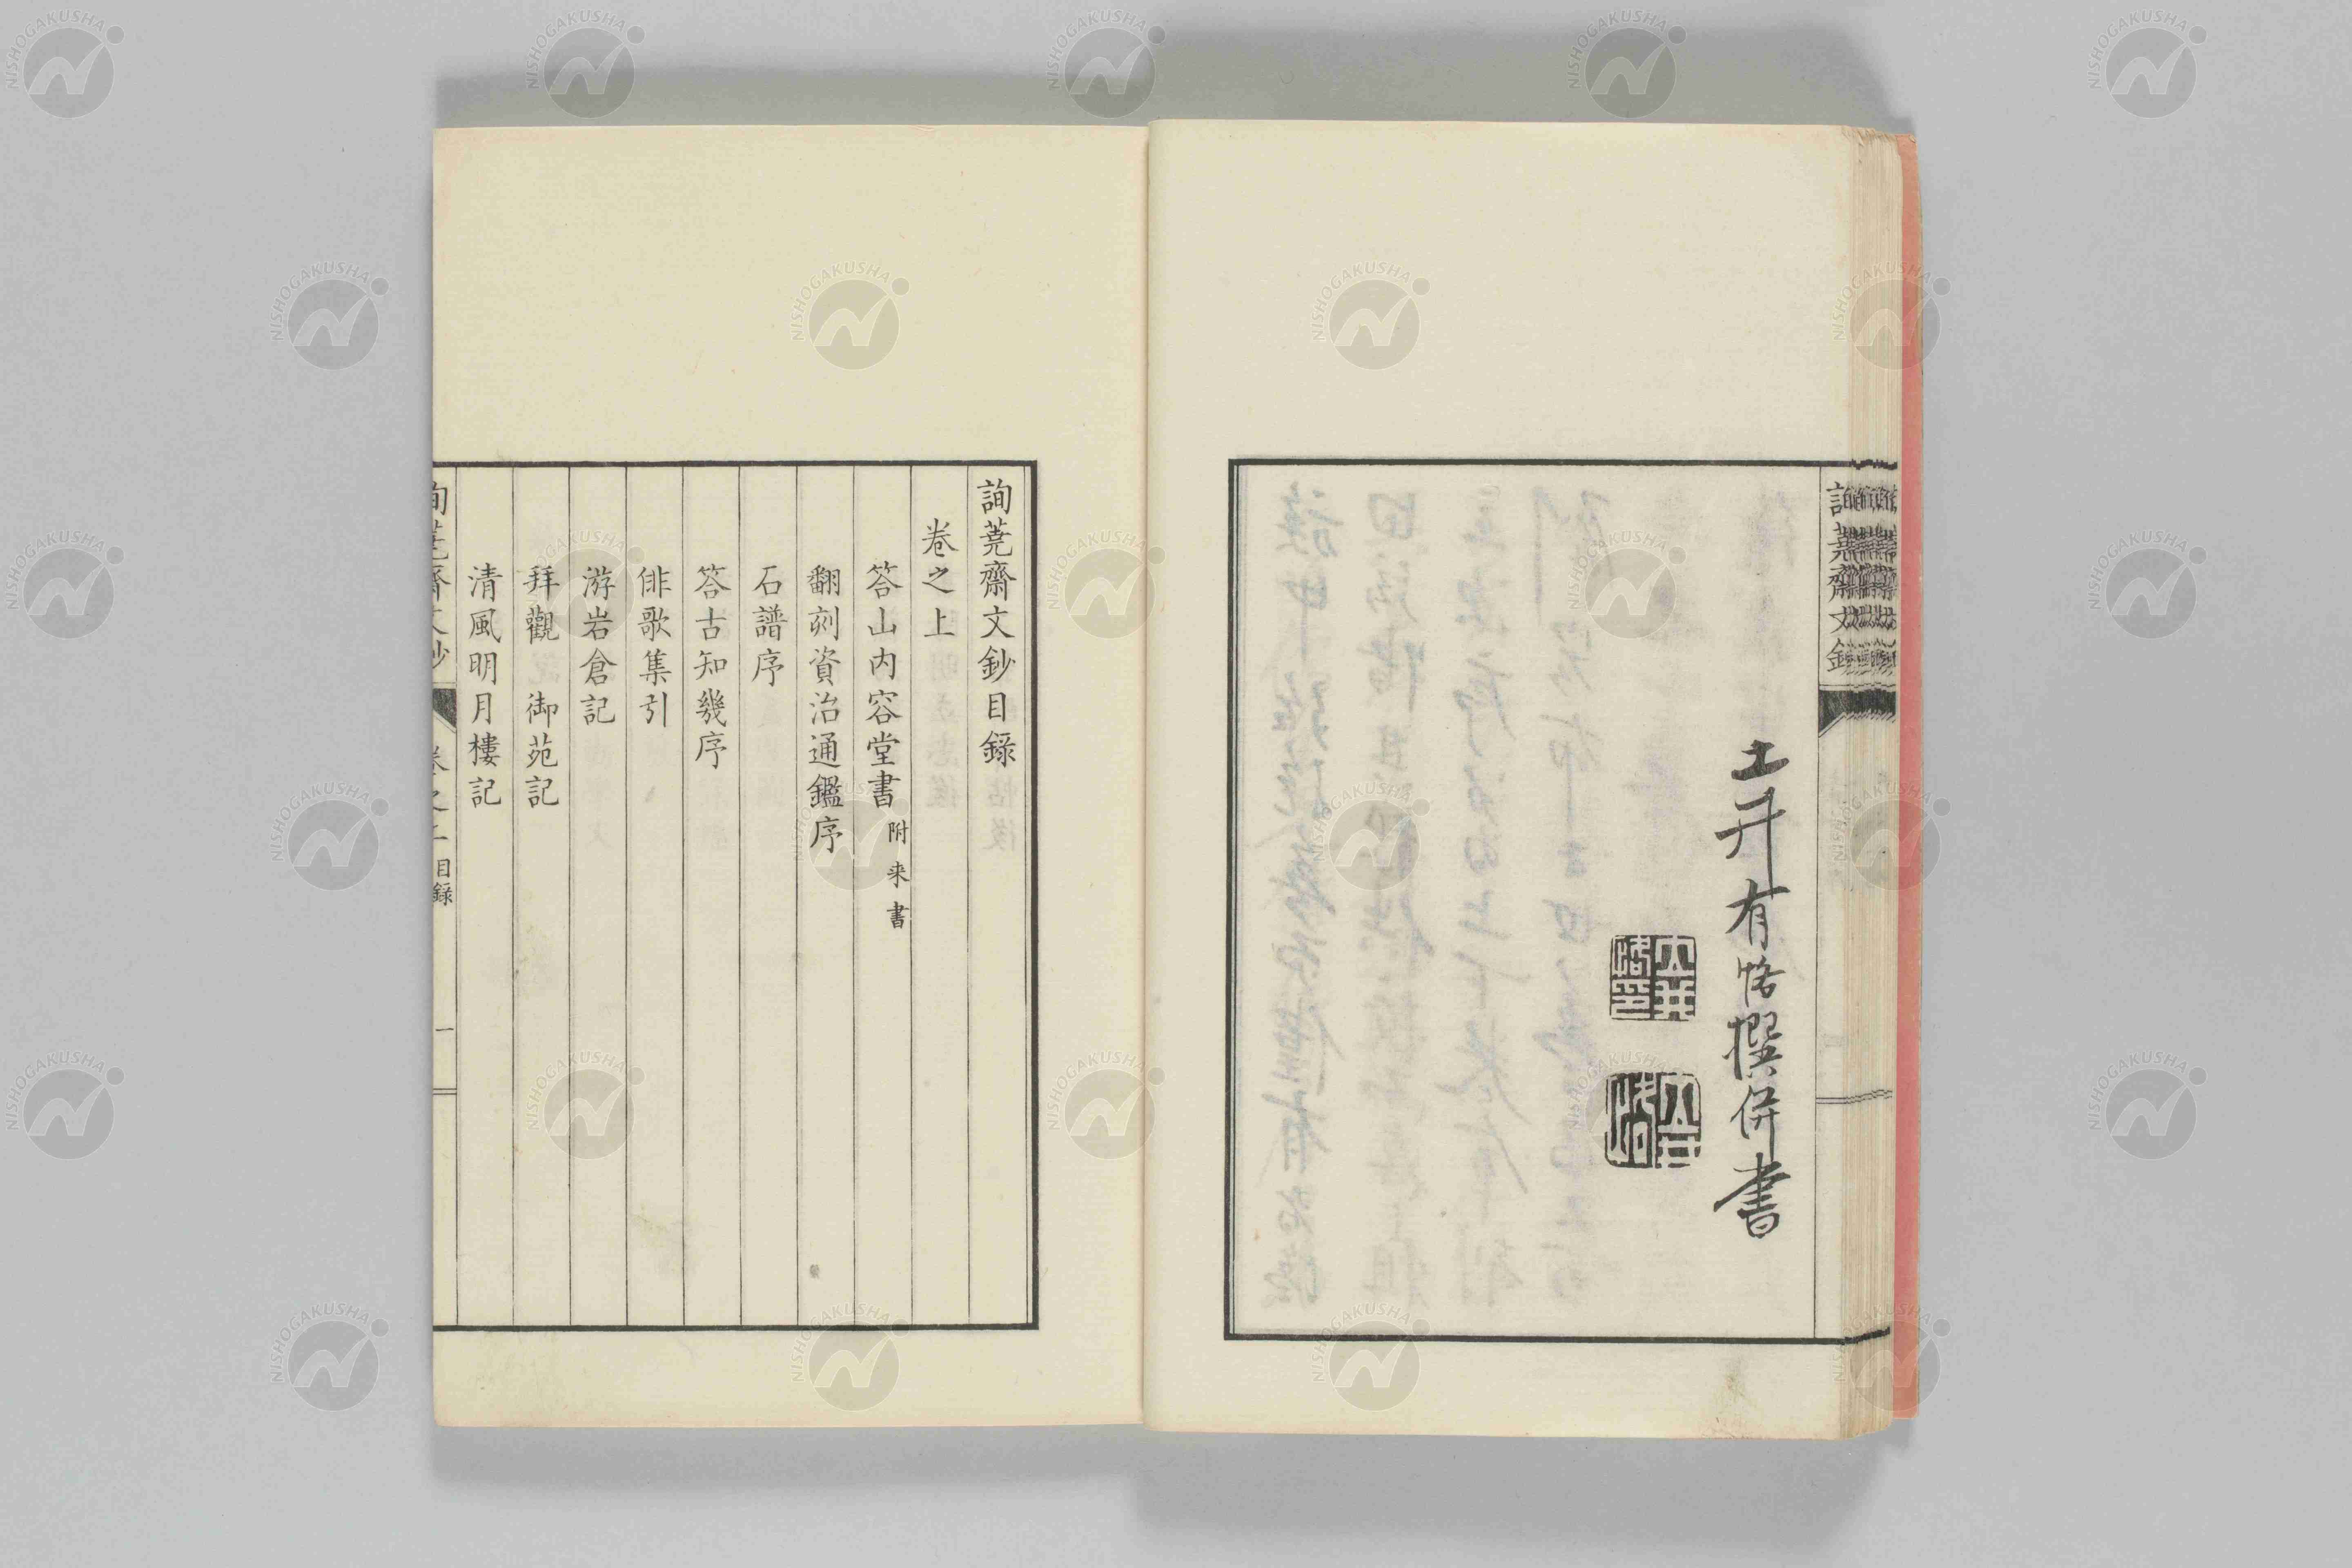 土井有恪撰併書
詢蕘齋文鈔目錄
卷之上
答山内容堂書 附来書
翻刻資治通鑑序
石譜序
答古知幾序
俳歌集引
游岩倉記
拜觀 御苑記
清風明月樓記
詢蕘齋文鈔 卷之上 目錄 一